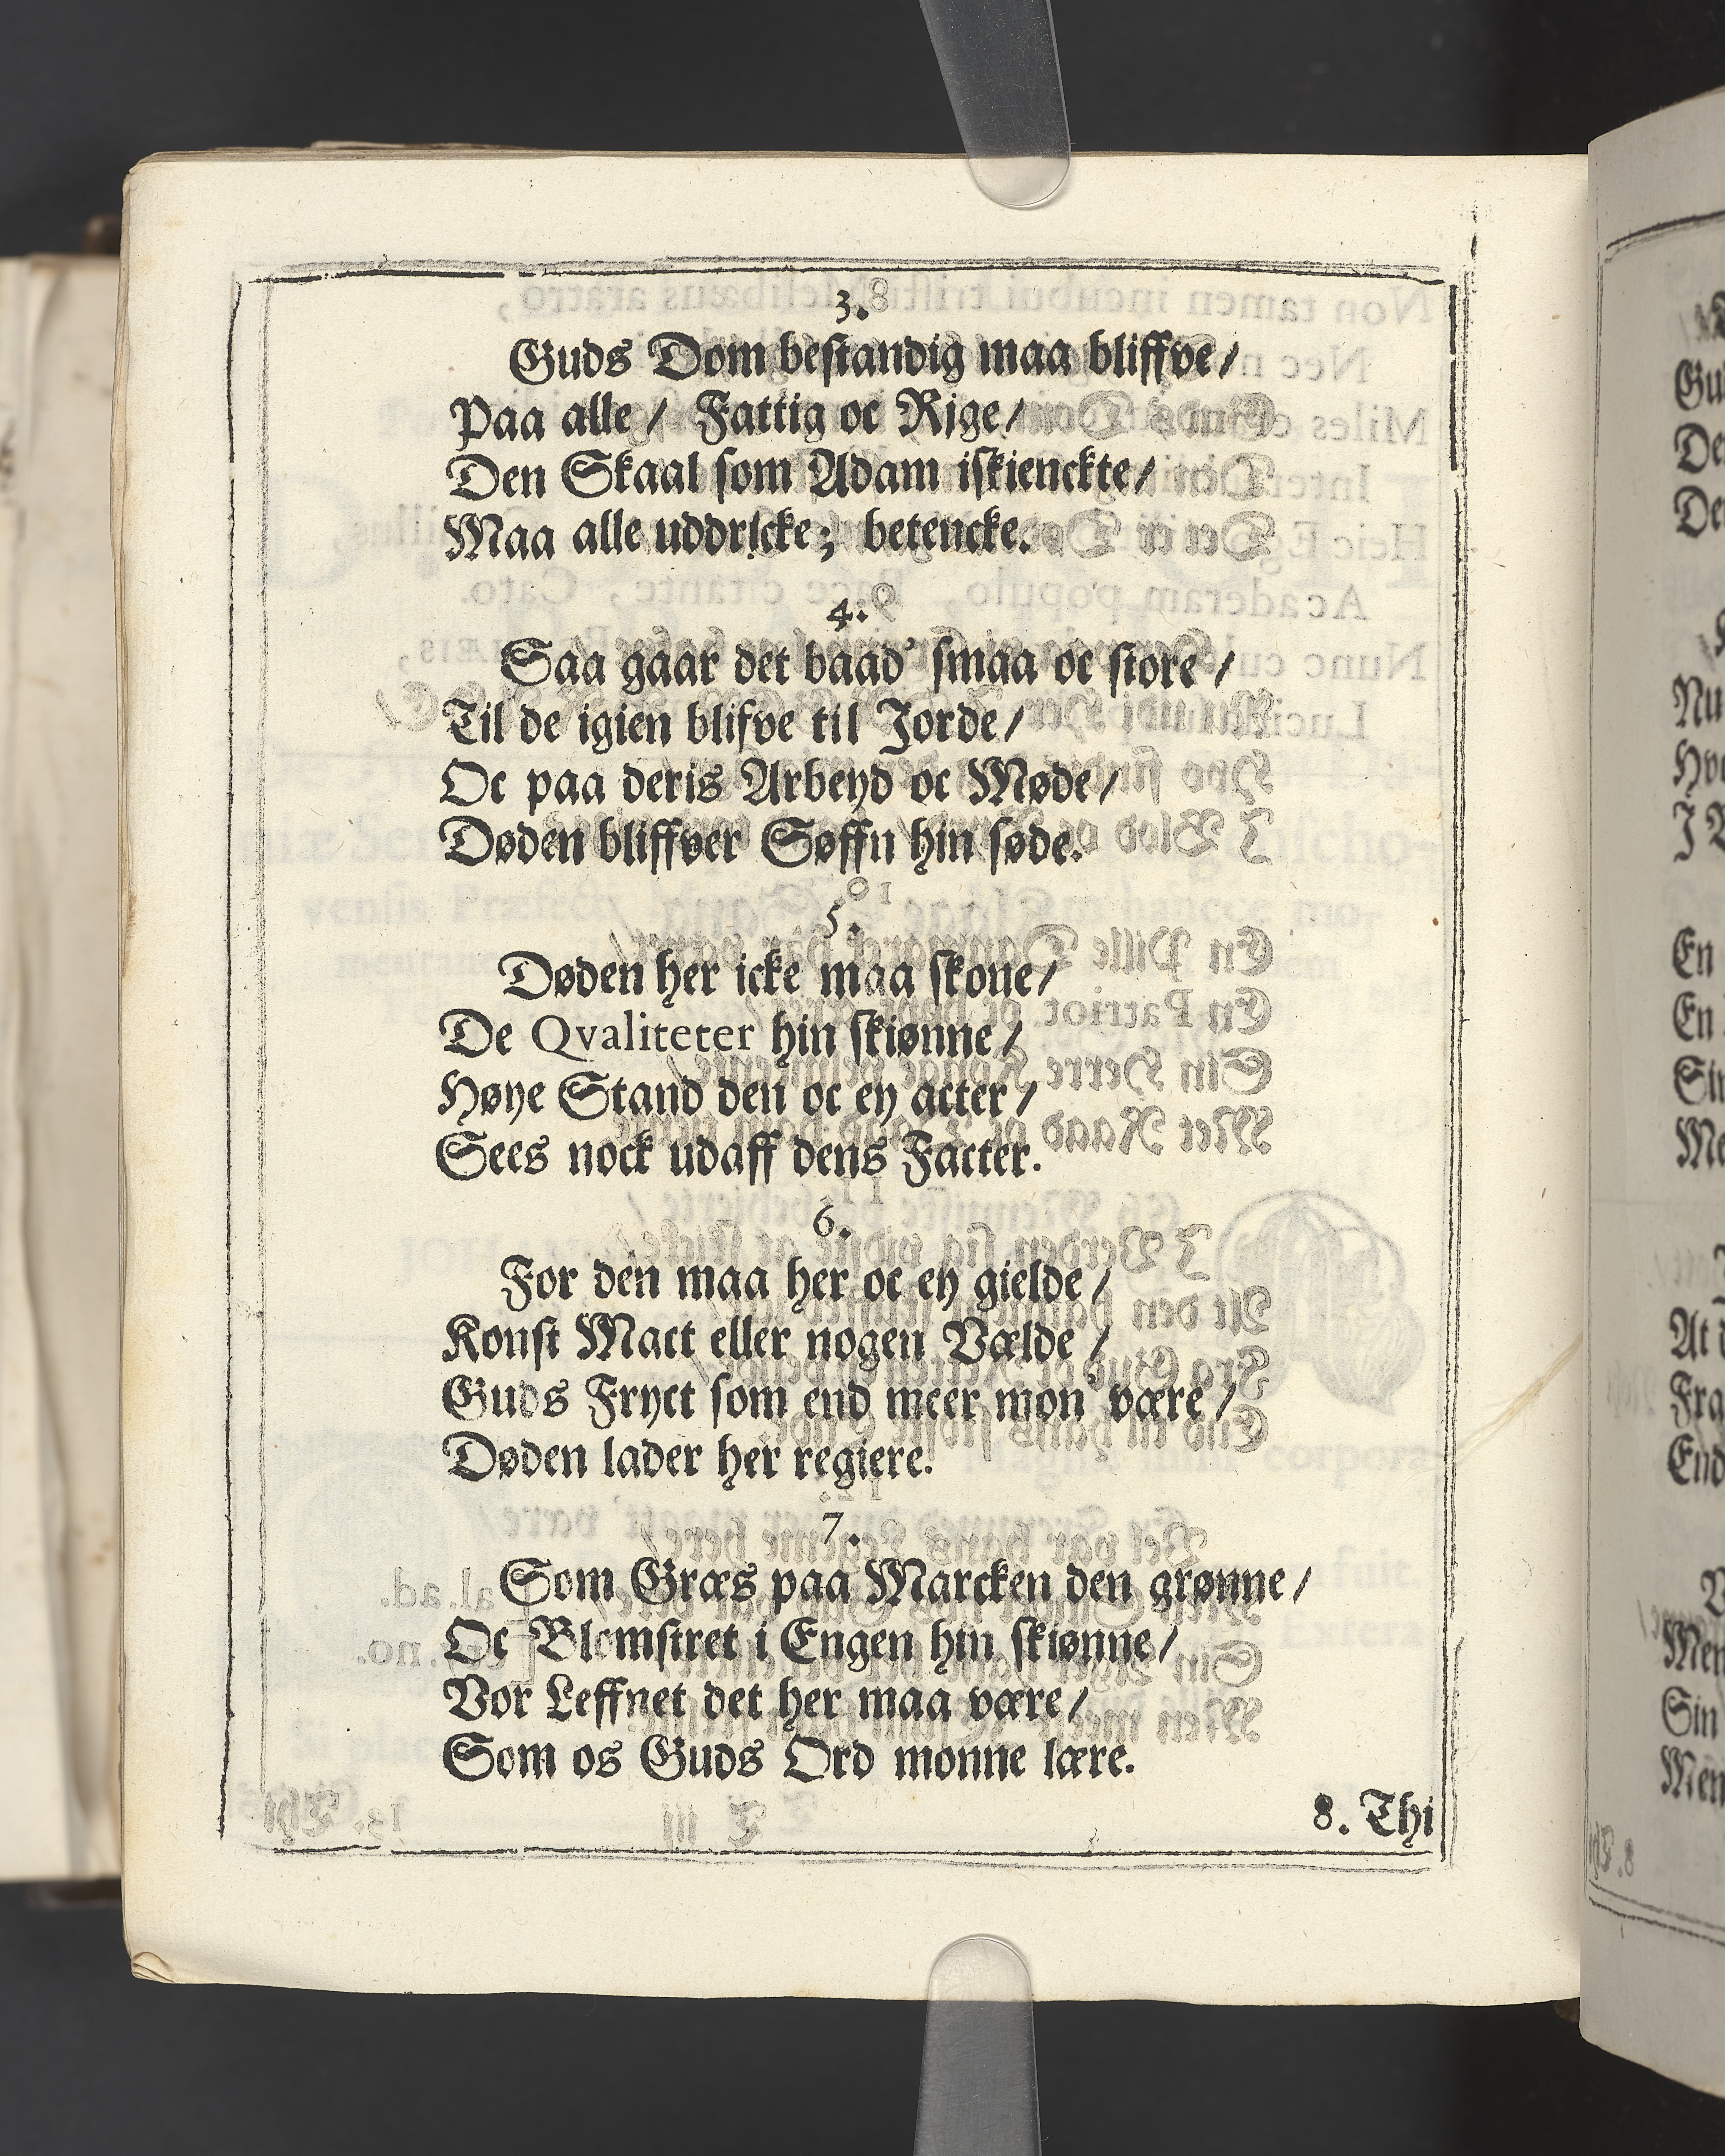 3.
Guds Dom bestandig maa bliffve/
Paa alle/ Fattig oc Rige/
Den Skaal som Adam iskienckte/
Maa alle uddricke; betencke.
4.
Saa gaar det baad' smaa oc store/
Til de igien blifve til Jorde/
Oc paa deris Arbeyd oc Møde/
Døden bliffver Søffn hin søde.
5.
Døden her icke maa skone/
De Qvaliteter hin skiønne/
Høye Stand den oc ey acter/
Sees nock udaff dens Facter.
6.
For den maa her oc ey gielde/
Konst Mact eller nogen Vælde/
Guds Fryct som end meer mon' være/
Døden lader her regiere.
7.
Som Græs paa Marcken den grønne/
Oc Blomstret i Engen hin skiønne/
Vor Leffnet det her maa være/
Som os Guds Ord monne lære.
8. Thi